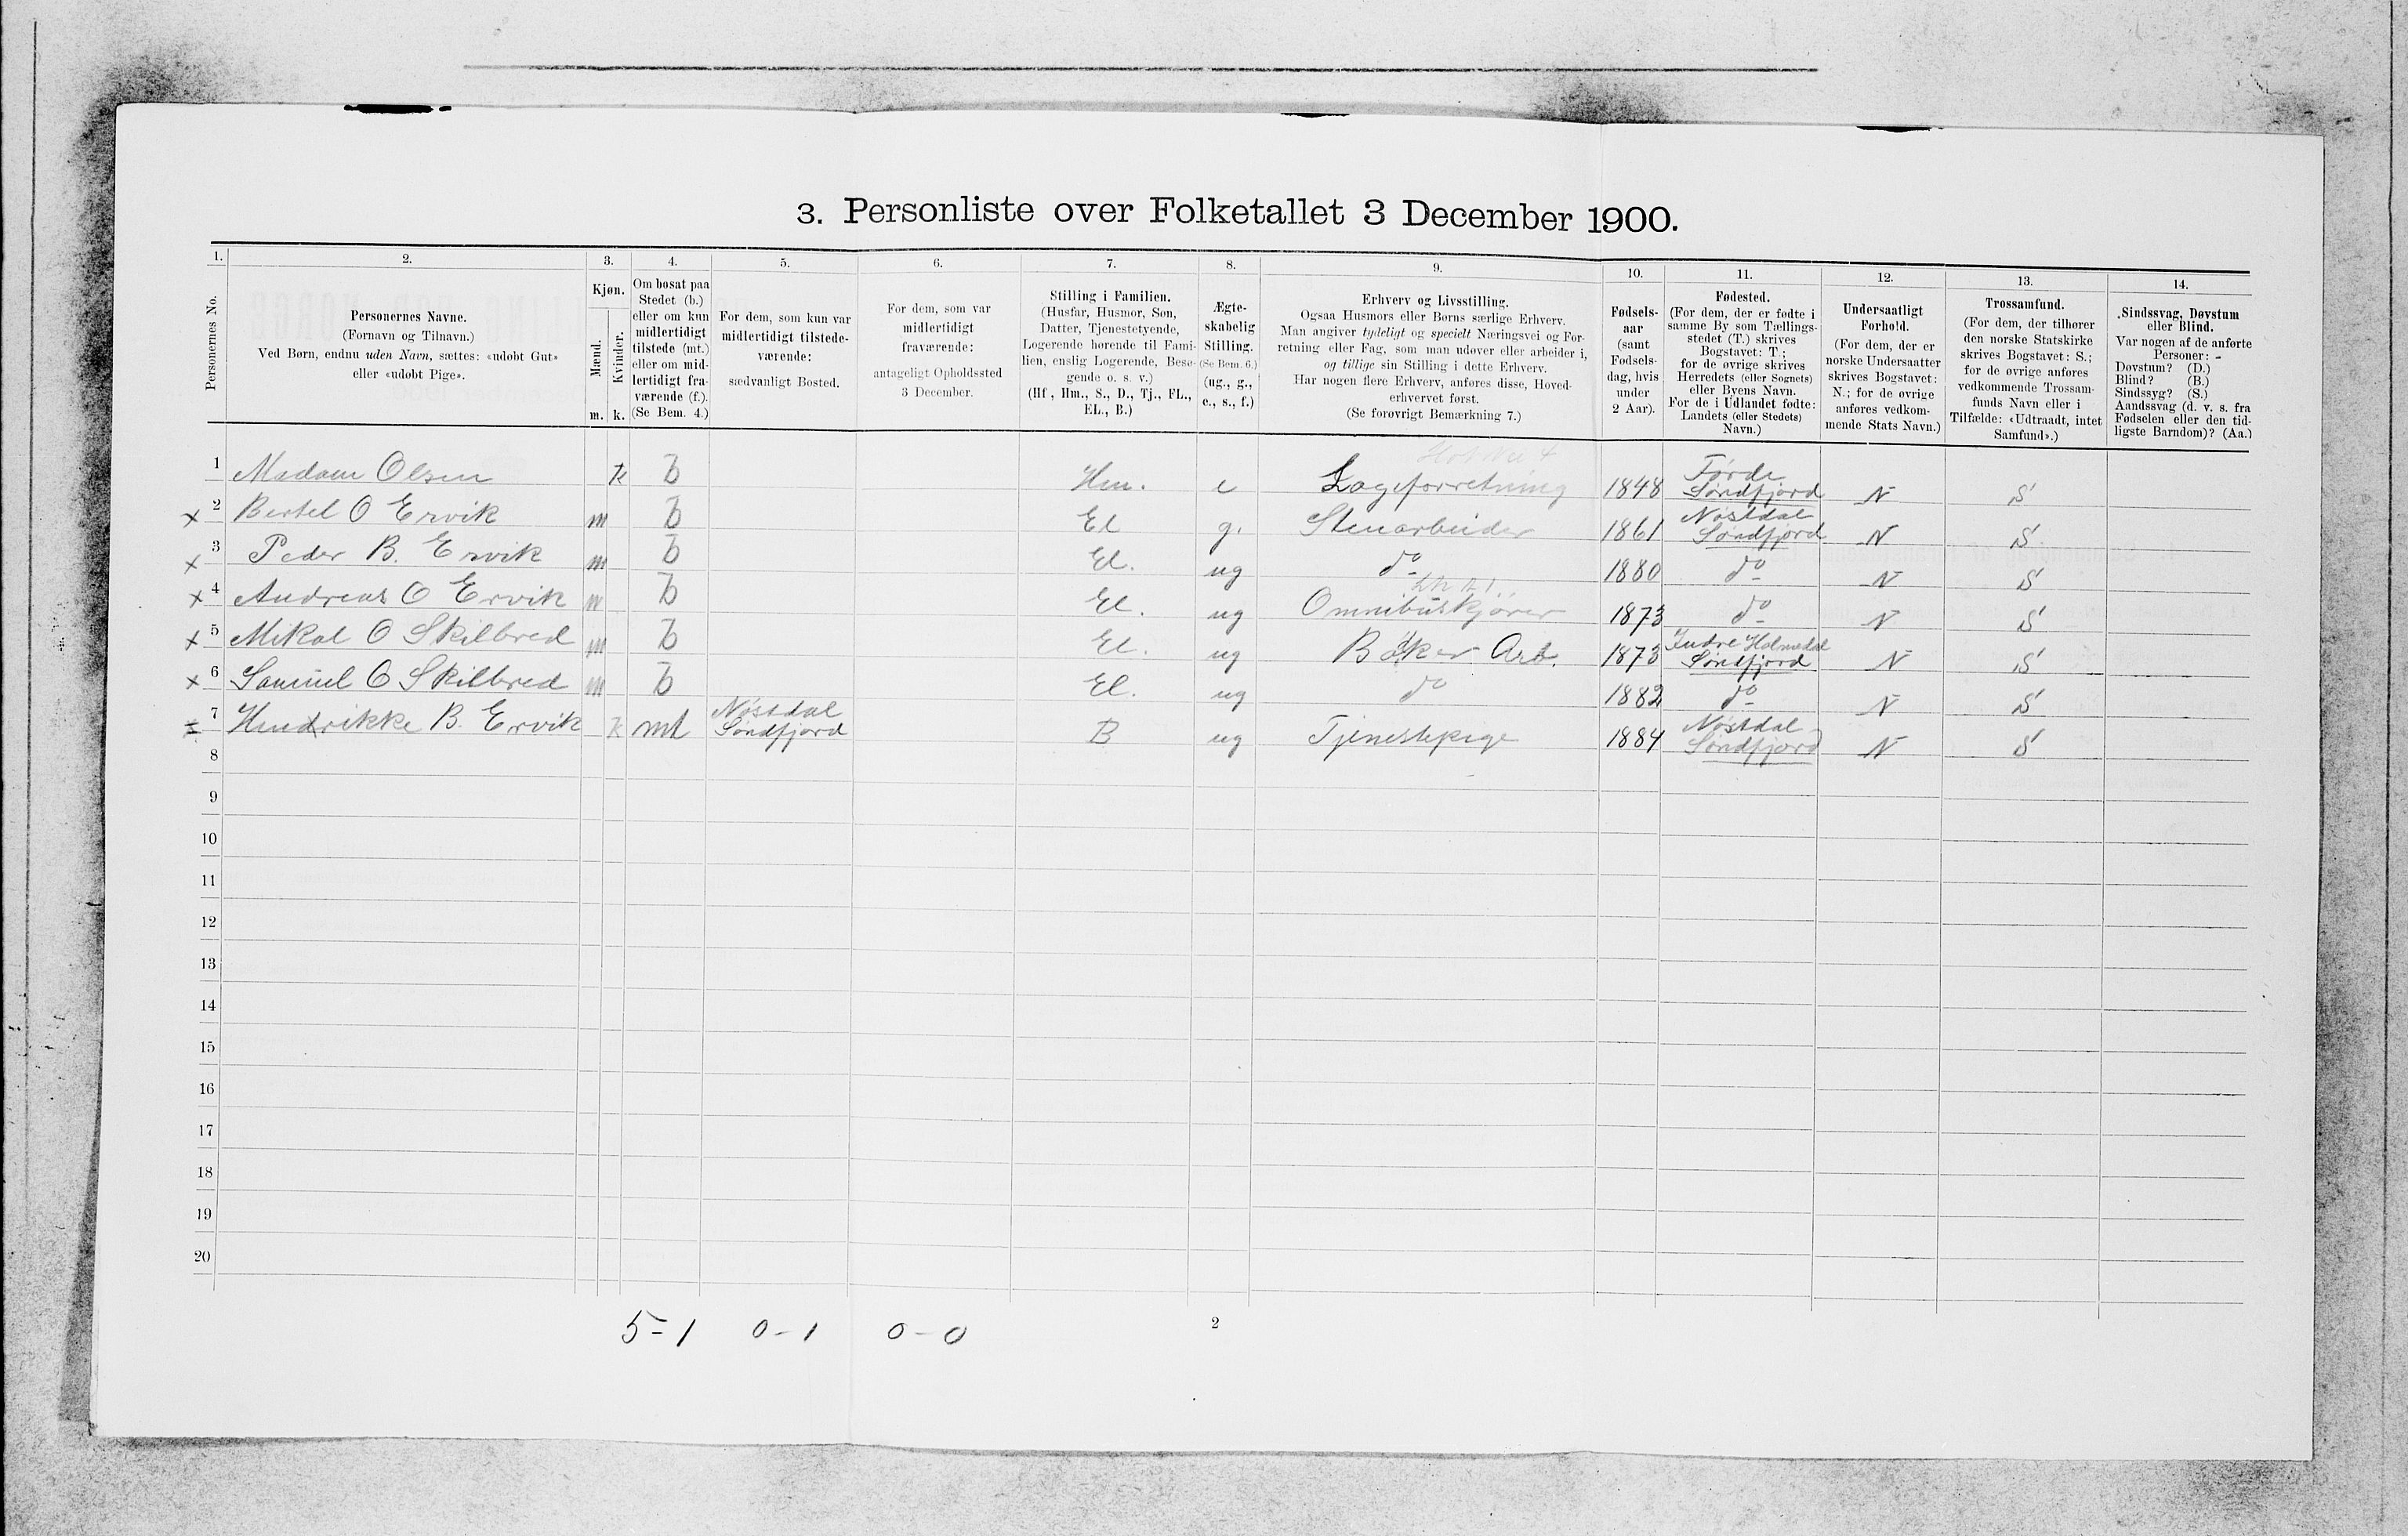 3. Personliste over Folketallet 3 December 1900.
1. 2. 3. 4. 5. 6. 7. 8. 9. 10. 11. 12. 13. 14.
Personernes No.
Personernes Navne.
(Fornavn og Tilnavn.)
Ved Børn, endnu uden Navn, sættes: «udøbt Gut»
eller «udøbt Pige».
Kjøn.
Mænd.
Kvinder.
m. k.
Om bosat paa
Stedet (b.)
eller om kun
midlertidigt
tilstede (mt.)
eller om mid-
lertidigt fra-
værende (f.).
(Se Bem. 4.)
For dem, som kun var
midlertidigt tilstede-
værende:
sædvanligt Bosted.
For dem, som var
midlertidigt
fraværende:
antageligt Opholdssted
3 December.
Stilling i Familien.
(Husfar, Husmor, Søn,
Datter, Tjenestetyende,
Logerende hørende til Fami-
lien, enslig Logerende, Besø-
gende o. s. v.)
(Hf., Hm., S., D., Tj., FL.,
EL., B.)
Ægte-
skabelig
Stilling.
(Se Bem. 6.)
(ug., g.,
e., s., f.)
Erhverv og Livsstilling.
Ogsaa Husmors eller Børns særlige Erhverv.
Man angiver tydeligt og specielt Næringsvei og For-
retning eller Fag, som man udøver eller arbeider i,
og tillige sin Stilling i dette Erhverv.
Har nogen flere Erhverv, anføres disse, Hoved-
erhvervet først.
(Se forøvrigt Bemærkning 7.)
Fødsels-
aar
(samt
Fødsels-
dag, hvis
under
2 Aar).
Fødested.
(For dem, der er fødte i
samme By som Tællings-
stedet (T.) skrives
Bogstavet: T.;
for de øvrige skrives
Herredets (eller Sognets)
eller Byens Navn.
For de i Udlandet fødte:
Landets (eller Stedets)
Navn.)
Undersaatligt
Forhold.
(For dem, der er
norske Undersaatter
skrives Bogstavet:
N.; for de øvrige
anføres vedkom-
mende Stats Navn.)
Trossamfund.
(For dem, der tilhører
den norske Statskirke
skrives Bogstavet: S.;
for de øvrige anføres
vedkommende Trossam-
funds Navn eller i
Tilfælde: «Udtraadt, intet
Samfund».)
Sindssvag, Døvstum
eller Blind.
Var nogen af de anførte
Personer:
Døvstum? (D.)
Blind? (B.)
Sindssyg? (S.)
Aandssvag (d. v. s. fra
Fødselen eller den tid-
ligste Barndom)? (Aa.)
1 Madam Olsen k b Hm. e Logiforretning 1848 Førde Søndfjord N S
x 2 Bertel O Ervik m b El g. Stenarbeider 1861 Nøstdal Søndfjord N S
x 3 Peder B. Ervik m b El. ug do 1880 do N S
x 4 Andreas O Ervik m b El. ug Omnibuskjører 1873 do N S
x 5 Mikal O Skilbred m b El. ug Bøker Arb. 1873 Indre Holmedal Søndfjord N S
x 6 Samuel O Skilbred m b El. ug do 1882 do N S
x 7 Hendrikke B. Ervik k mt Nøstdal Søndfjord B ug Tjenestepige 1884 Nøstdal Søndfjord N S
8
9
10
11
12
13
14
15
16
17
18
19
20
5-1 0-1 0-0
2